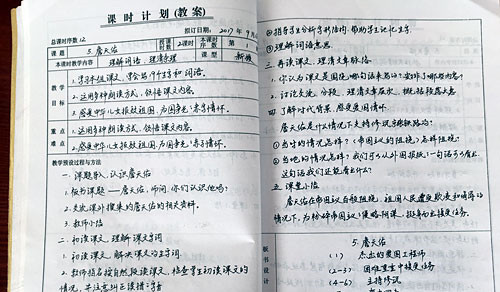 课 时 计 划（教案）
总课时序数 12
拟订日期：2017 年 9 月
课 题
5.詹天佑
2课时
本课时序数
第 1
本课时教学内容
理解词语、理清条理
课 型
新授
教学目标
1.学习本组课文，学会第19个生字和词语。
2.运用多种朗读方式，领悟课文内容。
3.感受中华儿女报效祖国、为国争光之赤子情怀。
重点
难点
1.运用多种朗读方式，领悟课文内容。
2.感受中华儿女报效祖国、为国争光之赤子情怀。
教学预设过程与方法
一、课题导入，认识詹天佑
1.板书课题——詹天佑，师问：你们认识他吗？
2.交流课外搜集的詹天佑的相关资料。
3.教师小结
二、初读课文，理解课文字词
1.初读课文，解决课文的生字词。
2.教师指名按自然段读课文，检查学生初读课文的
情况，并注意纠正读错字音
②指导学生分析字形结构，帮助学生记忆生字
③理解词语意思
三、再读课文，理清文章脉络
1.你认为课文是围绕哪句话来写的？安排了哪些内容？
2.讨论交流，分段，理清文章层次，概括段落大意
四、了解时代背景，感受爱国情怀
詹天佑是什么情况下主持修筑京张铁路的？
①当时的情况怎样？（帝国主义的阻挠）怎样阻挠？
②当地的情况怎样？我们可以从外国报纸一句话可以看出
这句话我们还能看出什么？
五、课堂小结
詹天佑在帝国主义百般阻挠，祖国人民遭受欺凌和嘲讽的
情况下，为粉碎帝国主义侵略阴谋，挺身而出接受任务。
板书设计
5.詹天佑
（1） 杰出的爱国工程师
（2-3） 困难重重中接受任务
（4-6） 主持修筑